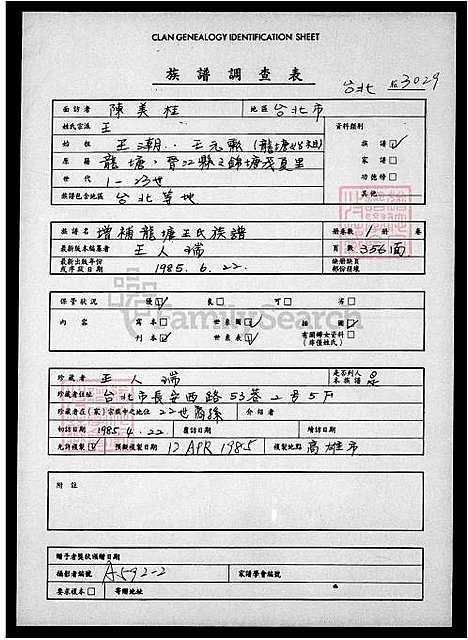 CLAN GENEALOGY IDENTIFICATION SHEET
族譜調查表
台北 3029
面訪者 陳美桂 地區 台北市
姓氏宗派 王 資料類別
始祖 王潮..王元 (龍塘
族譜 ✓
原籍 龍塘,晉江縣之錦塘茂夏里 家譜
世代 1-23世 功德榜
族譜包含地區 台北等地 其他
族譜名 增補龍塘王氏族譜 冊卷數 1 冊 卷
最新版本編纂者 王人瑞 頁數 356面
最新出版年份或序跋日期 1985.6.22. 缺冊缺頁部份殘壞
保管狀況 優 ✓ 良 可 劣
內容 寫本 世系圖 插圖
刊本 ✓ 世系表 ✓ 有關婦女資料(序僅姓氏)
FamilySearch
珍藏者 王人瑞 是否列入本族譜 是
珍藏者住址 台北市長安西路53巷2号5戶
珍藏者在(家)宗族中之地位 22世裔孫 介紹者
初訪日期 1985.4.22 覆訪日期 續訪日期
允許複製 ✓ 預擬複製日期 12 APR 1985 複製地點 高雄市
附註
贈予者獎狀頒贈日期
攝影者編號 A592-2 家譜學會編號
要求複本 寄贈地址